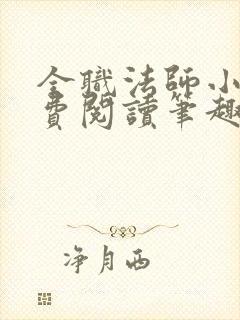 全職法師小
費閱讀筆趣
净月西